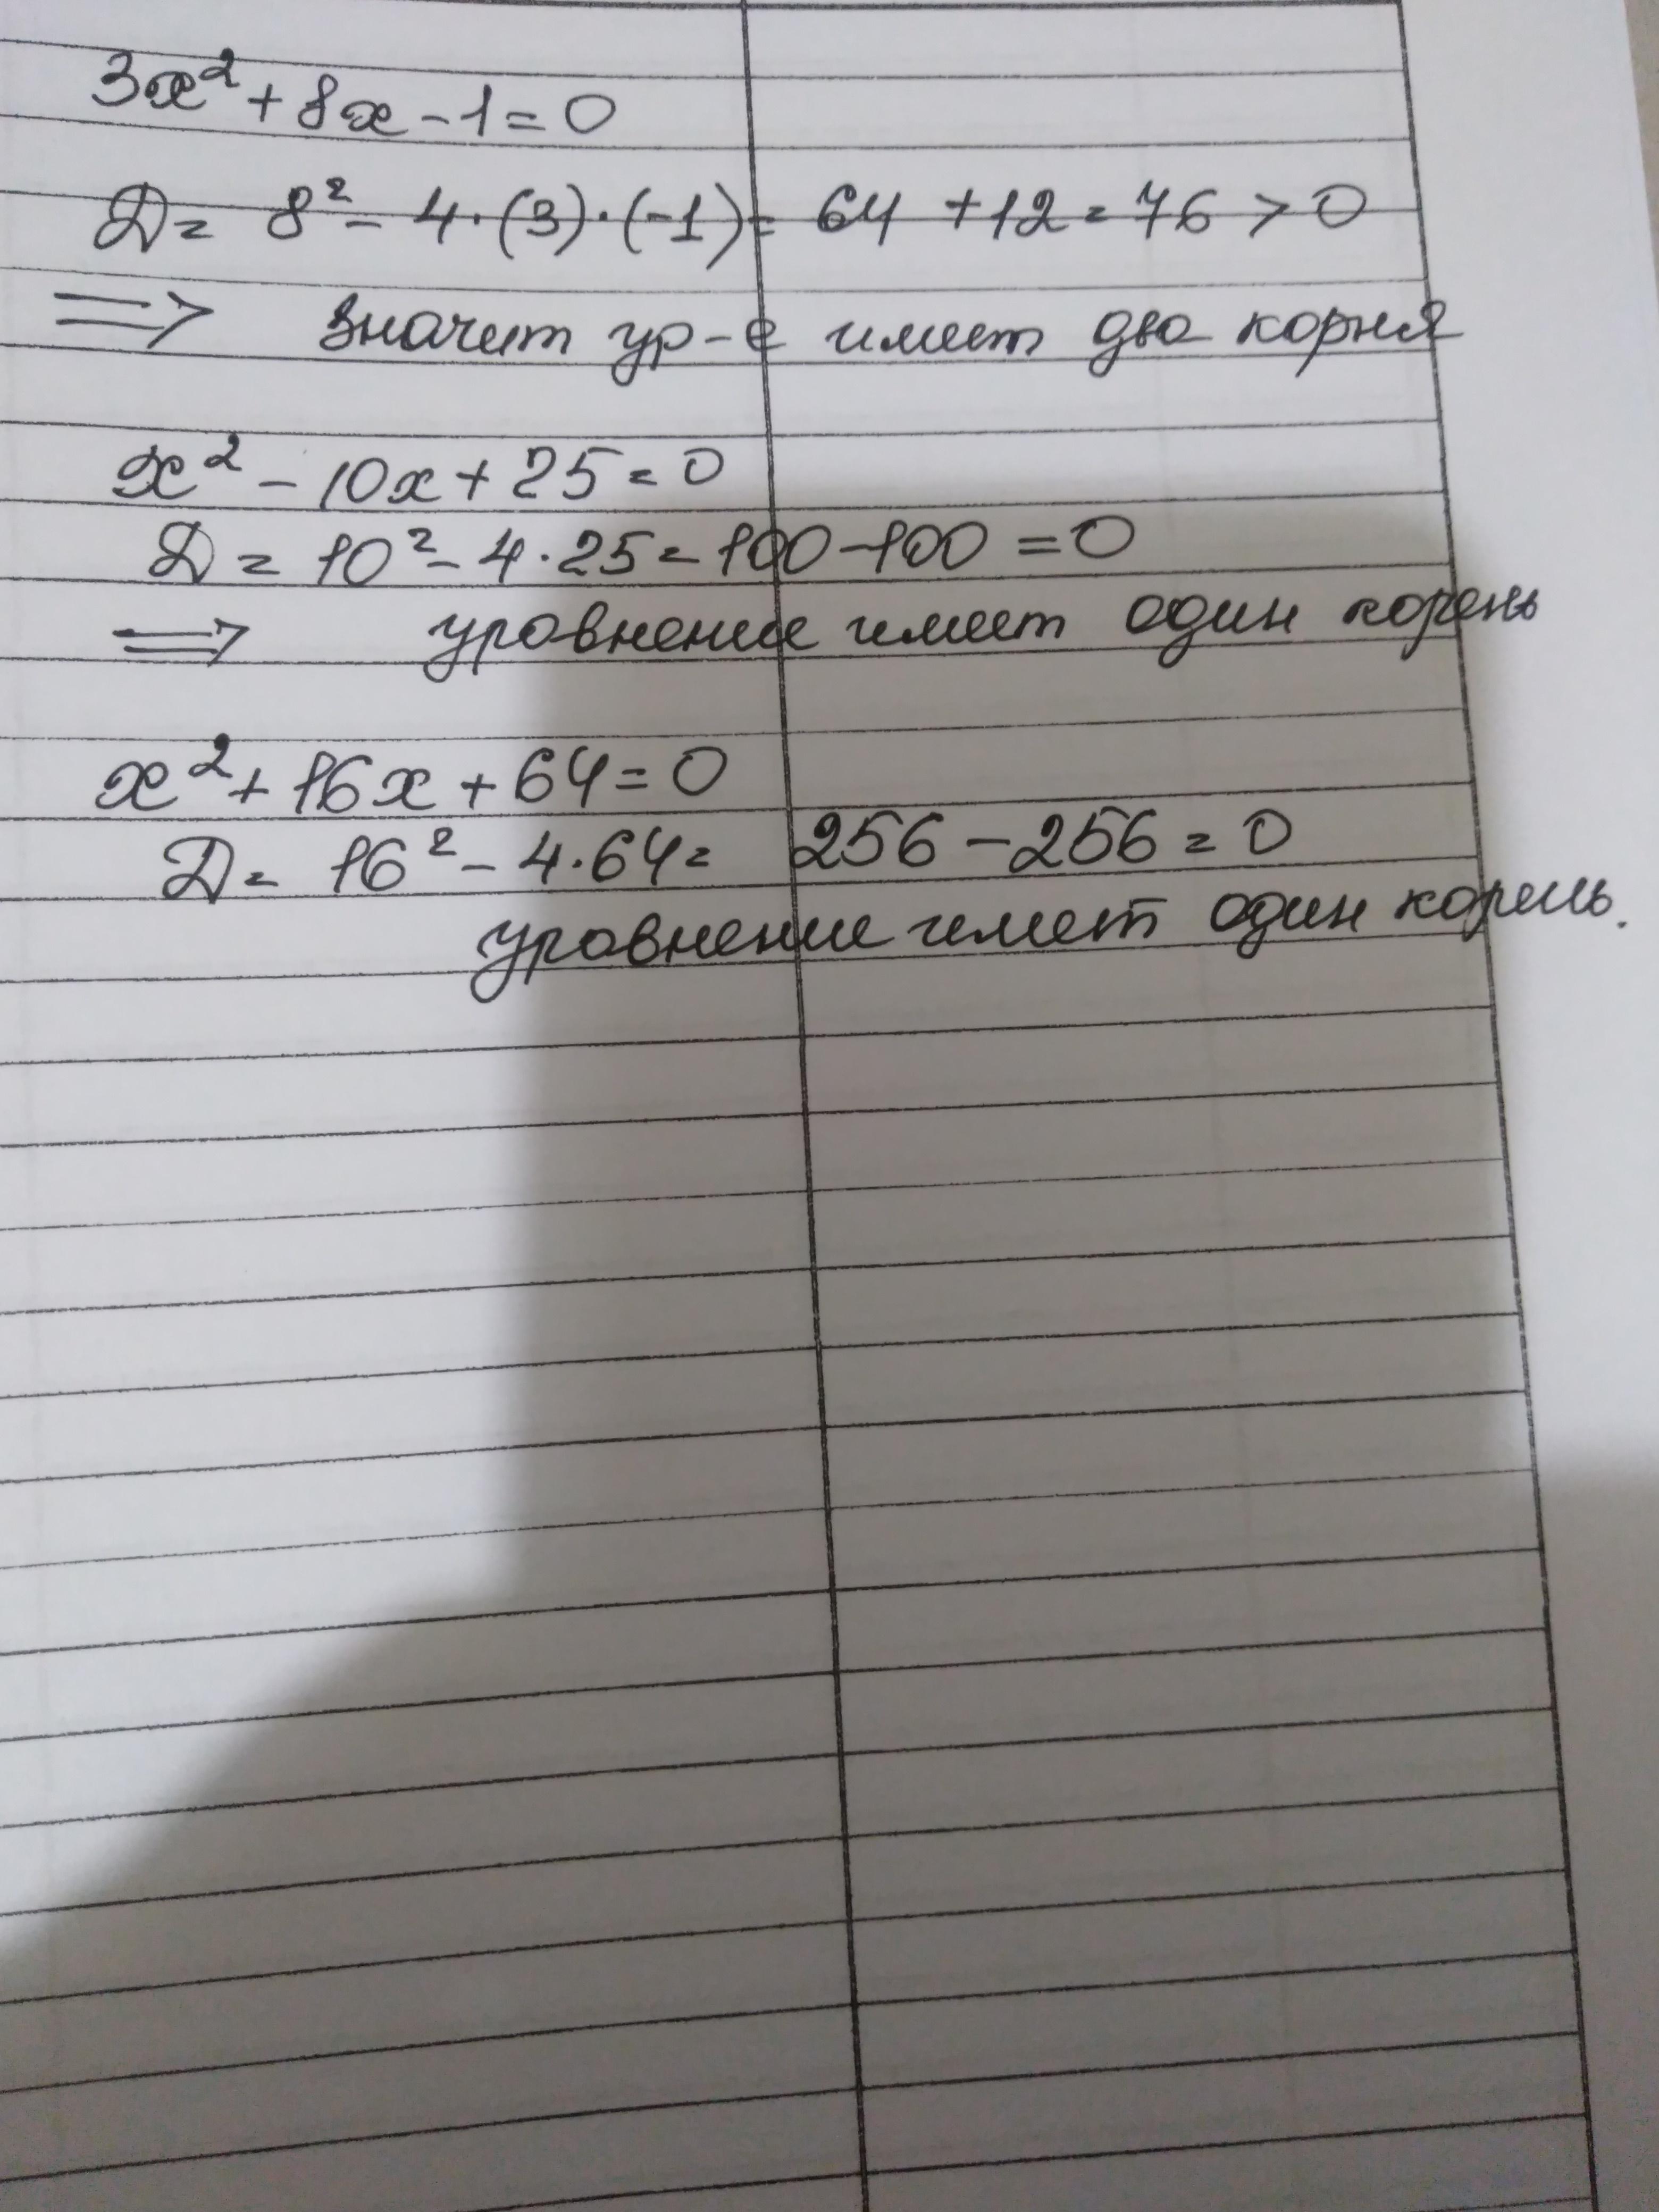 3x² + 8x - 1 = 0
D = 8² - 4·(3)·(-1) = 64 + 12 = 76 > 0
⟹ значит ур-е имеет два корня
x² - 10x + 25 = 0
D = 10² - 4·25 = 100 - 100 = 0
⟹ уровнение имеет один корень
x² + 16x + 64 = 0
D = 16² - 4·64 = 256 - 256 = 0
уровнение имеет один корень.